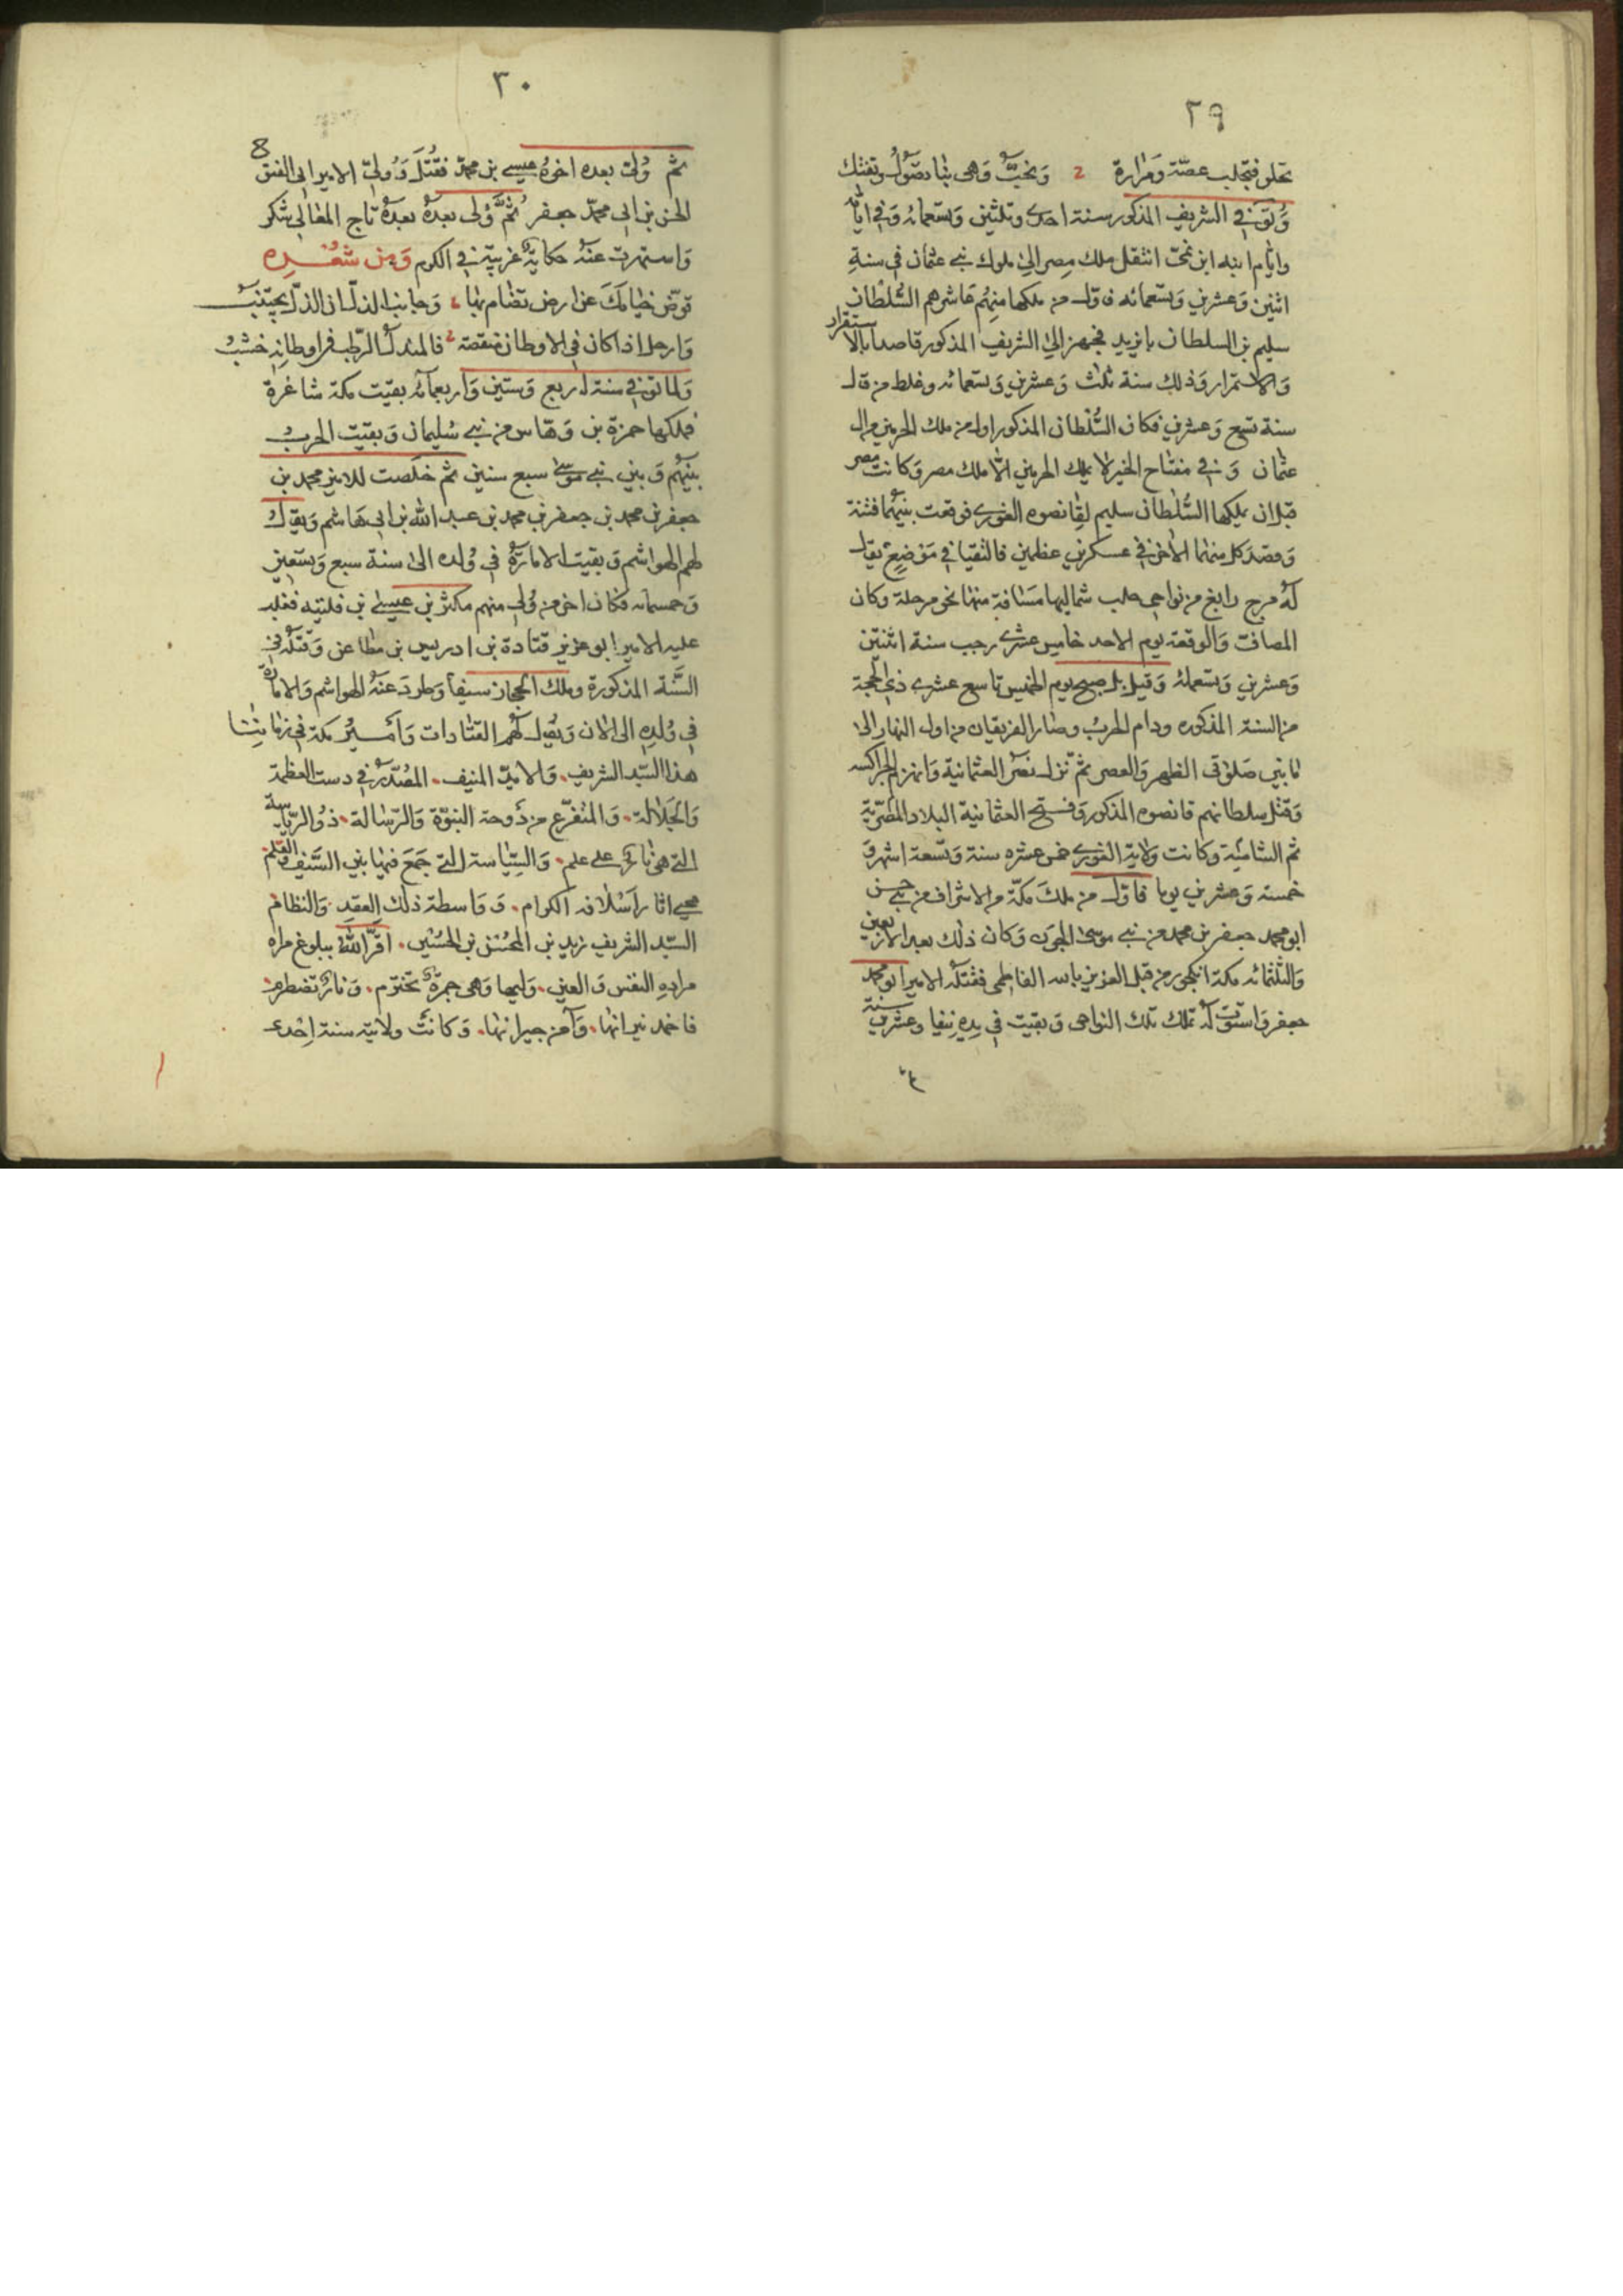 ٢٩
تحلو فتجلب غصّة ومرارة وتخبّ وهى بنا تصول وتفتك
وتوفي الشريف المذكور سنة احدى وثلثين وتسعمائه وفي ايامه
وايام ابيه ابن نمىّ انتقل ملك مصر الى ملوك بنى عثمان فى سنة
اثنين وعشرين وتسعمائه فاوّل من ملكها منهم عاشرهم السلطان
سليم بن السلطان بايزيد فجهز الى الشريف المذكور قاصدا بالاستقرار
والاستمرار وذلك سنة ثلث وعشرين وتسعمائه وغلط من قال
سنة تسع وعشرين فكان السلطان المذكور اول من ملك الحرمين من ال
عثمان وفي مفتاح الخير لا يملك الحرمين الّا ملك مصر وكانت مصر
قبل ان يملكها السلطان سليم لقانصوه الغورى فوقعت بينهما فتنة
وقصد كل منهما الاخر في عسكرين عظمين فالتقيا في موضع يقال
له مرج رابغ من نواحى حلب شماليها مسافة منها نحو مرحلة وكان
المصافت والوقعة يوم الاحد خامس عشرى رجب سنة اثنتين
وعشرين وتسعمائه وقيل بل صبح يوم الخميس تاسع عشرى ذي الحجة
من السنة المذكوره ودام الحرب وصار الفريقان من اول النهار الى
ما بين صلوتى الظهر والعصر ثمّ نزل نصر العثمانية وانهزم الجراكسه
وقتل سلطانهم قانصوه المذكور وفتح العثمانية البلاد المصريّة
ثم الشاميّة وكانت ولاية الغورى خمس عشره سنة وتسعة اشهر و
خمسة وعشرين يوما فاوّل من ملك مكّة من الاشراف من بنى حسن
ابو محمد جعفر بن محمد من بنى موسى الجون وكان ذلك بعد الاربعين
والثلثمائه مكة انكجور من قبل العزيز بالله الفاطمى فقتله الامير ابو محمد
جعفر واستوت له تملك تلك النواحى وبقيت في يده نيفا وعشرين سنة
٣٠
8
ثم ولى بعده اخوه عيسى بن محمد فقُتل وولى الامير ابى الفتق
الحسن بن ابى محمد جعفر ثمّ ولى بعده بعده تاج المعالى شكر
واستهرت عنه حكاية غريبة في الكرم ومن شعره
قوّض خيامك عن ارض تضام بها وجانب الذل ان الذل يجتنب
وارحل اذا كان في الاوطان منقصة فالمندل الرطب في اوطانه خشب
ولما توفي سنة اربع وستين واربعمائه بقيت مكة شاغرة
فملكها حمزة بن وهّاس من بنى سليمان وبقيت الحرب
بينهم وبين بنى موسى سبع سنين ثم خلصت للامير محمد بن
جعفر بن محمد بن جعفر بن محمد بن عبد الله بن ابى هاشم ويقال
لهم الهواشم وبقيت الامارة في ولده الى سنة سبع وتسعين
وخمسمائه فكان اخر من ولى منهم مكثر بن عيسى بن فليته فغلب
عليه الامير ابو عزيز قتادة بن ادريس بن مطاعن وقتله في
السّنة المذكورة وملك الحجاز سيفا وطرد عنه الهواشم والامارة
في ولده الى الان ويقال لهم القتادات وامير مكة في زماننا
هذا السّيد الشريف والاميّ المنيف المصّدر في دست العظمة
والجلالة والمتفرّع من دوحة النبوّة والرّسالة ذو الرّياسة
التى هى نار على علم والسّياسة التى جمع فيها بين السّيف والقلم
محيى اثار اسلافه الكرام وواسطة ذلك العقد والنظام
السّيد الشريف زيد بن المحسن بن الحسين اقرّ الله ببلوغ مراه
مراده النفس والعين وليها وهى جمرة تحتوم ونار تضطرم
فاخمد نيرانها وآمن جيرانها وكانت ولايته سنة احدى